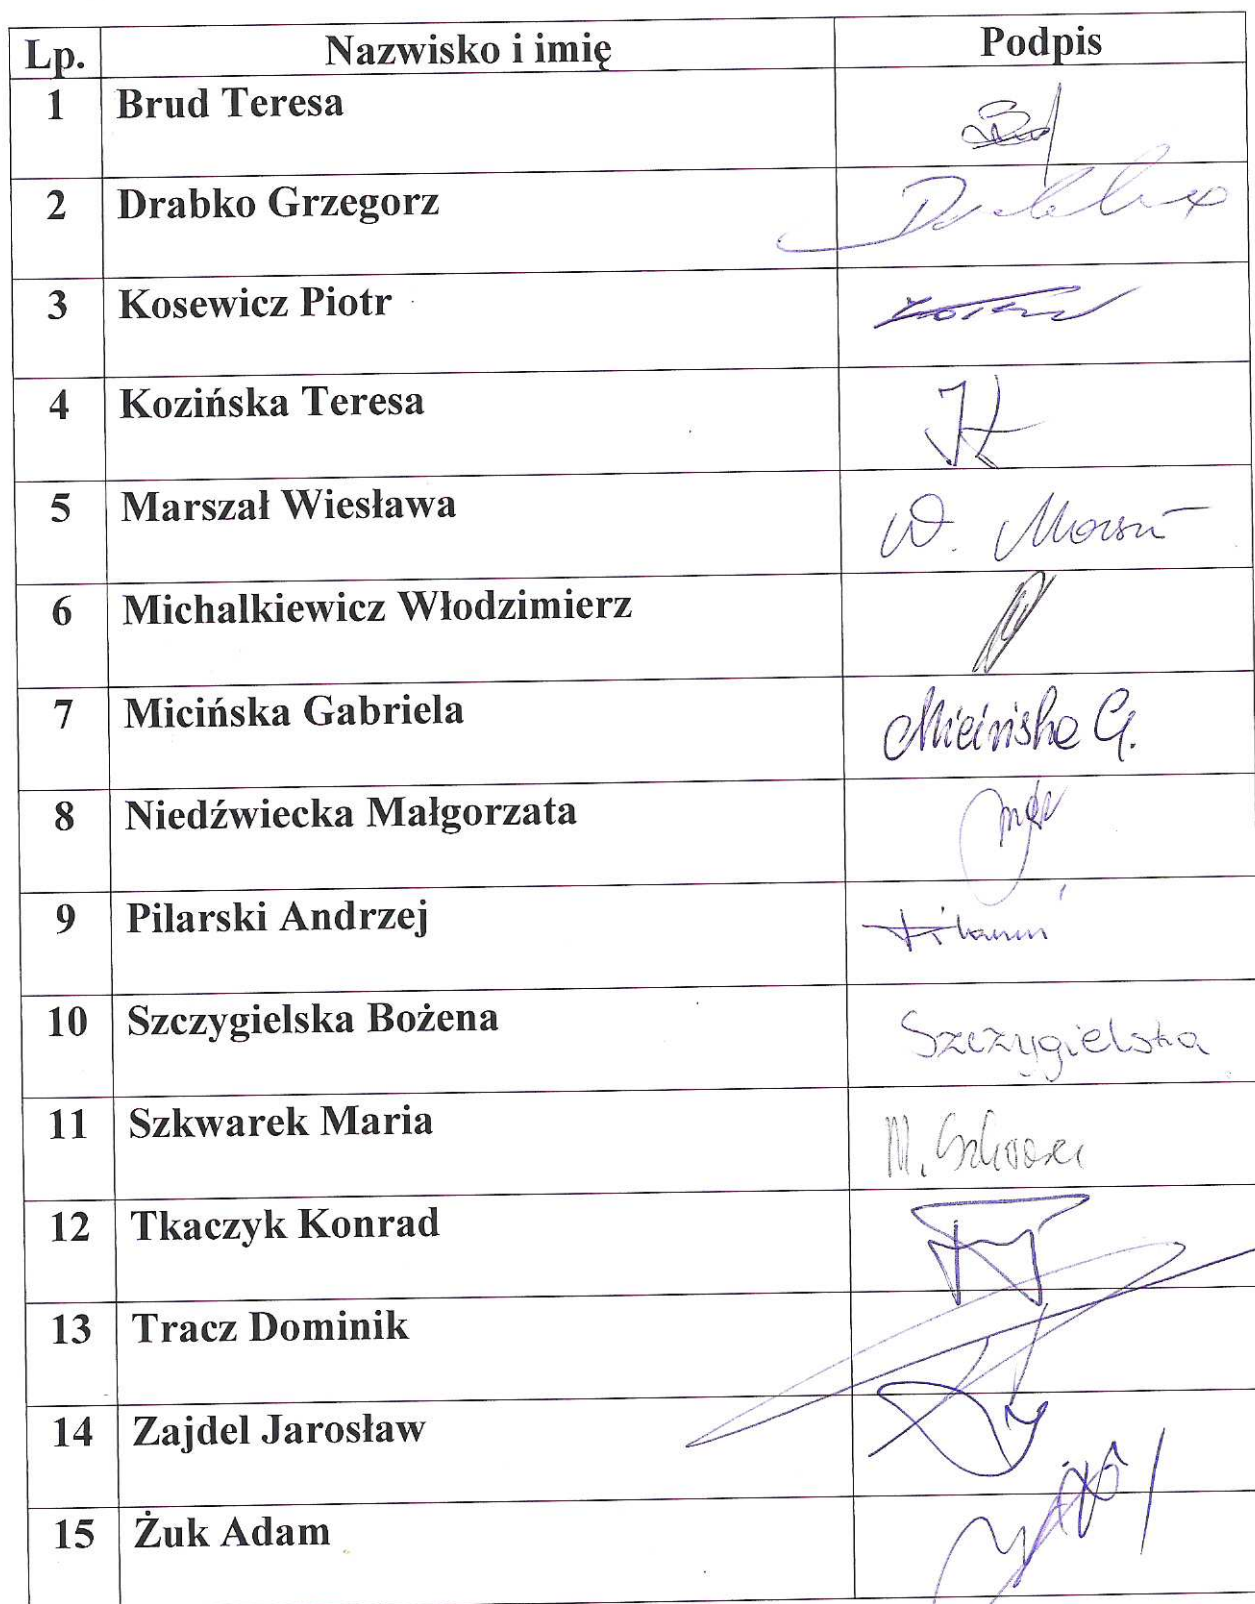 Lp. Nazwisko i imię Podpis
1 Brud Teresa
2 Drabko Grzegorz
3 Kosewicz Piotr
4 Kozińska Teresa
5 Marszał Wiesława W.
6 Michalkiewicz Włodzimierz
7 Micińska Gabriela Micińska G.
8 Niedźwiecka Małgorzata
9 Pilarski Andrzej
10 Szczygielska Bożena Szczygielska
11 Szkwarek Maria M.
12 Tkaczyk Konrad
13 Tracz Dominik
14 Zajdel Jarosław
15 Żuk Adam